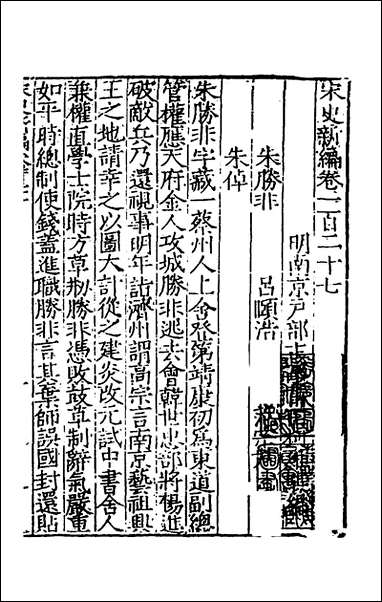 宋史新編卷一百二十七
明南京戶部主
朱勝非　呂頤浩
朱倬
朱勝非字藏一蔡州人上舍登第靖康初為東道副總
管權應天府金人攻城勝非逃去會韓世忠部將楊進
破敵兵乃還視事明年詣濟州謂高宗言南京藝祖興
王之地請幸之以圖大計從之建炎改元試中書舍人
兼權直學士院時方草刱勝非憑敗鼓草制辭氣嚴重
如平時總制使錢蓋進職勝非言其棄師誤國封還貼